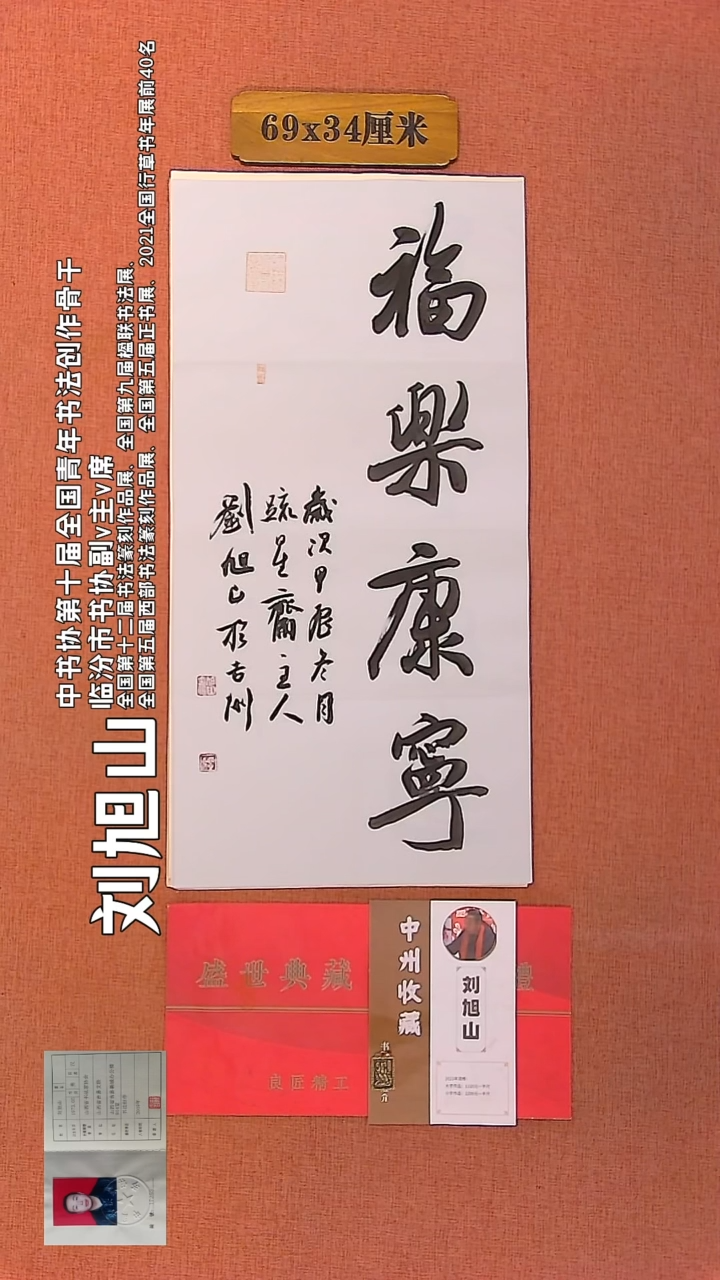 69x34厘米
福樂康寧
歲次甲辰冬月
疏星齋主人
劉旭山於吉州
刘旭山
中书协第十届全国青年书法创作骨干
临汾市书协副v主v席
全国第十二届书法篆刻作品展、全国第九届楹联书法展、
全国第五届西部书法篆刻作品展、全国第五届正书展、2021全国行草书年展前40名
盛世典藏
良匠精工
中州收藏
书
介
刘旭山
禮